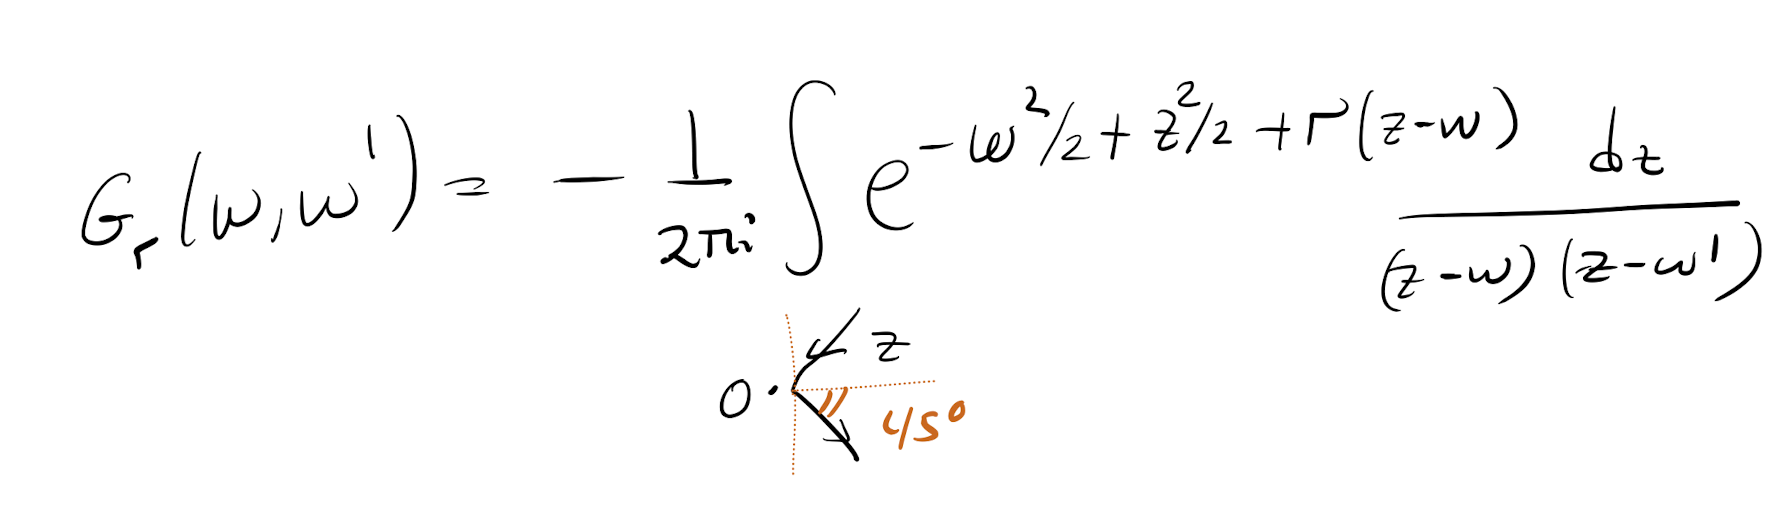 G_r(w,w') = - 1/2πi ∫ e^{-w²/2 + z²/2 + r(z-w)} dz/((z-w)(z-w'))
0 · z
45°